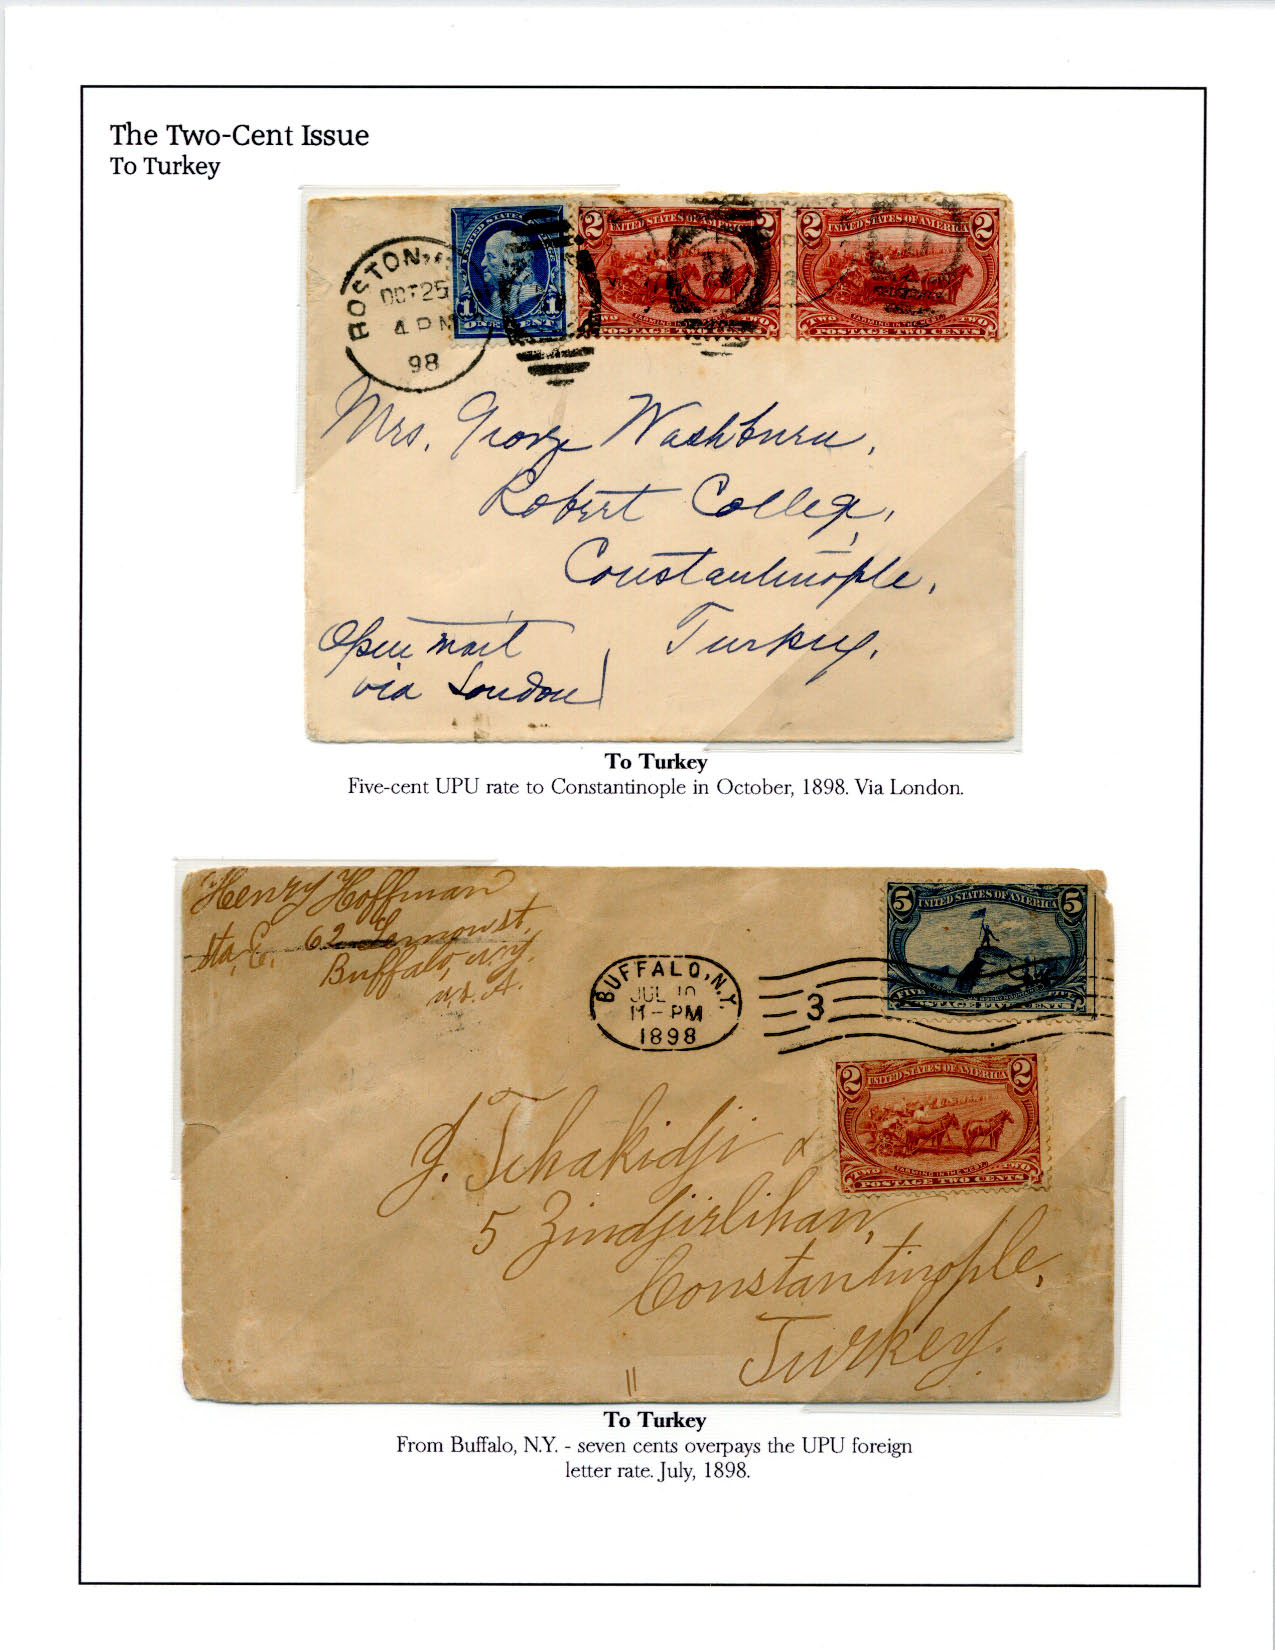 The Two-Cent Issue
To Turkey
BOSTON
OCT 25
4 PM
98
1 ONE CENT 1
2 UNITED STATES OF AMERICA 2
FARMING IN THE WEST
TWO TWO
POSTAGE TWO CENTS
2 UNITED STATES OF AMERICA 2
TWO TWO
POSTAGE TWO CENTS
Mrs. George Washburn,
Robert College,
Constantinople,
Turkey.
Open mail
via London
To Turkey
Five-cent UPU rate to Constantinople in October, 1898. Via London.
Henry Hoffman
Sta. C. 62 st,
Buffalo, N.Y.
U.S.A.
BUFFALO, N.Y.
JUL 10
11 - PM
1898
3
5 UNITED STATES OF AMERICA 5
POSTAGE FIVE CENTS
2 UNITED STATES OF AMERICA 2
FARMING IN THE WEST
TWO TWO
POSTAGE TWO CENTS
J. Tchakidji &
5 Zindjirlihan,
Constantinople,
Turkey.
11
To Turkey
From Buffalo, N.Y. - seven cents overpays the UPU foreign
letter rate. July, 1898.